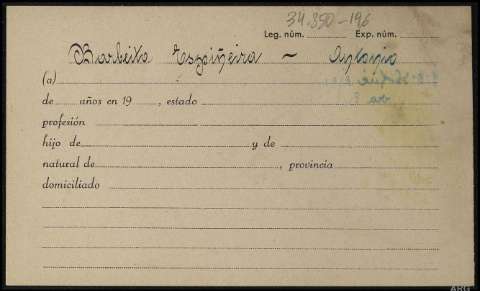 34.350-196
Leg. núm. Exp. núm.
Barbeito Espiñeira - Antonio
(a)
de años en 19 , estado
profesión
hijo de y de
natural de , provincia
domiciliado
ARG